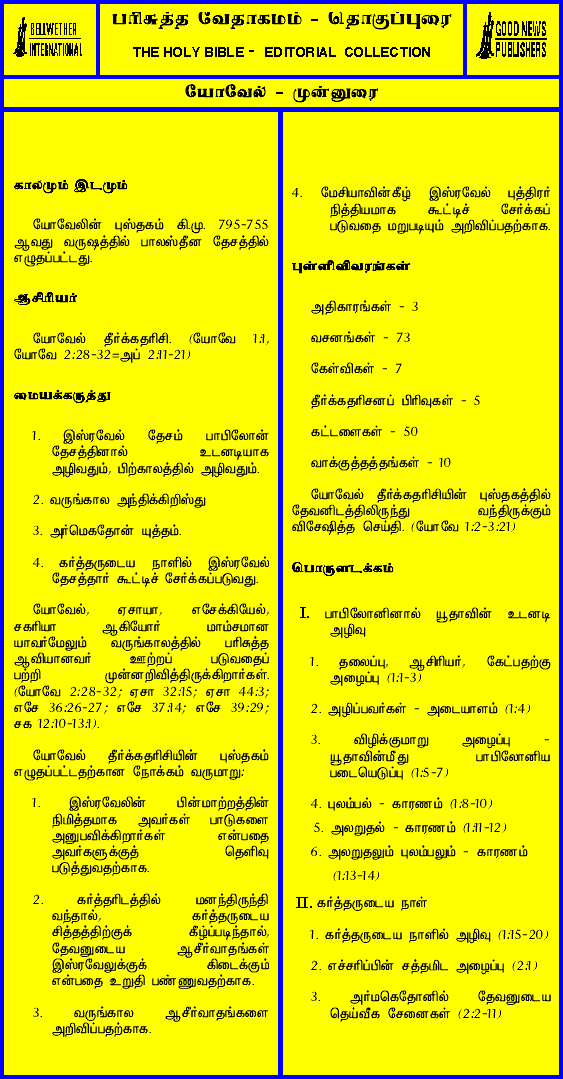 BELLWETHER
INTERNATIONAL
பரிசுத்த வேதாகமம் - தொகுப்புரை
THE HOLY BIBLE - EDITORIAL COLLECTION
GOOD NEWS
PUBLISHERS
யோவேல் - முன்னுரை
காலமும் இடமும்
யோவேலின் புஸ்தகம் கி.மு. 795-755
ஆவது வருஷத்தில் பாலஸ்தீன தேசத்தில்
எழுதப்பட்டது.
ஆசிரியர்
யோவேல் தீர்க்கதரிசி. (யோவே 1:1,
யோவே 2:28-32=அப் 2:11-21)
மையக்கருத்து
1. இஸ்ரவேல் தேசம் பாபிலோன்
தேசத்தினால் உடனடியாக
அழிவதும், பிற்காலத்தில் அழிவதும்.
2. வருங்கால அந்திக்கிறிஸ்து
3. அர்மெகதோன் யுத்தம்.
4. கர்த்தருடைய நாளில் இஸ்ரவேல்
தேசத்தார் கூட்டிச் சேர்க்கப்படுவது.
யோவேல், ஏசாயா, எசேக்கியேல்,
சகரியா ஆகியோர் மாம்சமான
யாவர்மேலும் வருங்காலத்தில் பரிசுத்த
ஆவியானவர் ஊற்றப் படுவதைப்
பற்றி முன்னறிவித்திருக்கிறார்கள்.
(யோவே 2:28-32; ஏசா 32:15; ஏசா 44:3;
எசே 36:26-27; எசே 37:14; எசே 39:29;
சக 12:10-13:1).
யோவேல் தீர்க்கதரிசியின் புஸ்தகம்
எழுதப்பட்டதற்கான நோக்கம் வருமாறு:
1. இஸ்ரவேலின் பின்மாற்றத்தின்
நிமித்தமாக அவர்கள் பாடுகளை
அனுபவிக்கிறார்கள் என்பதை
அவர்களுக்குத் தெளிவு
படுத்துவதற்காக.
2. கர்த்தரிடத்தில் மனந்திருந்தி
வந்தால், கர்த்தருடைய
சித்தத்திற்குக் கீழ்ப்படிந்தால்,
தேவனுடைய ஆசீர்வாதங்கள்
இஸ்ரவேலுக்குக் கிடைக்கும்
என்பதை உறுதி பண்ணுவதற்காக.
3. வருங்கால ஆசீர்வாதங்களை
அறிவிப்பதற்காக.
4. மேசியாவின்கீழ் இஸ்ரவேல் புத்திரர்
நித்தியமாக கூட்டிச் சேர்க்கப்
படுவதை மறுபடியும் அறிவிப்பதற்காக.
புள்ளிவிவரங்கள்
அதிகாரங்கள் - 3
வசனங்கள் - 73
கேள்விகள் - 7
தீர்க்கதரிசனப் பிரிவுகள் - 5
கட்டளைகள் - 50
வாக்குத்தத்தங்கள் - 10
யோவேல் தீர்க்கதரிசியின் புஸ்தகத்தில்
தேவனிடத்திலிருந்து வந்திருக்கும்
விசேஷித்த செய்தி. (யோவே 1:2-3:21)
பொருளடக்கம்
I. பாபிலோனினால் யூதாவின் உடனடி
அழிவு
1. தலைப்பு, ஆசிரியர், கேட்பதற்கு
அழைப்பு (1:1-3)
2. அழிப்பவர்கள் - அடையாளம் (1:4)
3. விழிக்குமாறு அழைப்பு -
யூதாவின்மீது பாபிலோனிய
படையெடுப்பு (1:5-7)
4. புலம்பல் - காரணம் (1:8-10)
5. அலறுதல் - காரணம் (1:11-12)
6. அலறுதலும் புலம்பலும் - காரணம்
(1:13-14)
II. கர்த்தருடைய நாள்
1. கர்த்தருடைய நாளில் அழிவு (1:15-20)
2. எச்சரிப்பின் சத்தமிட அழைப்பு (2:1)
3. அர்மகெதோனில் தேவனுடைய
தெய்வீக சேனைகள் (2:2-11)